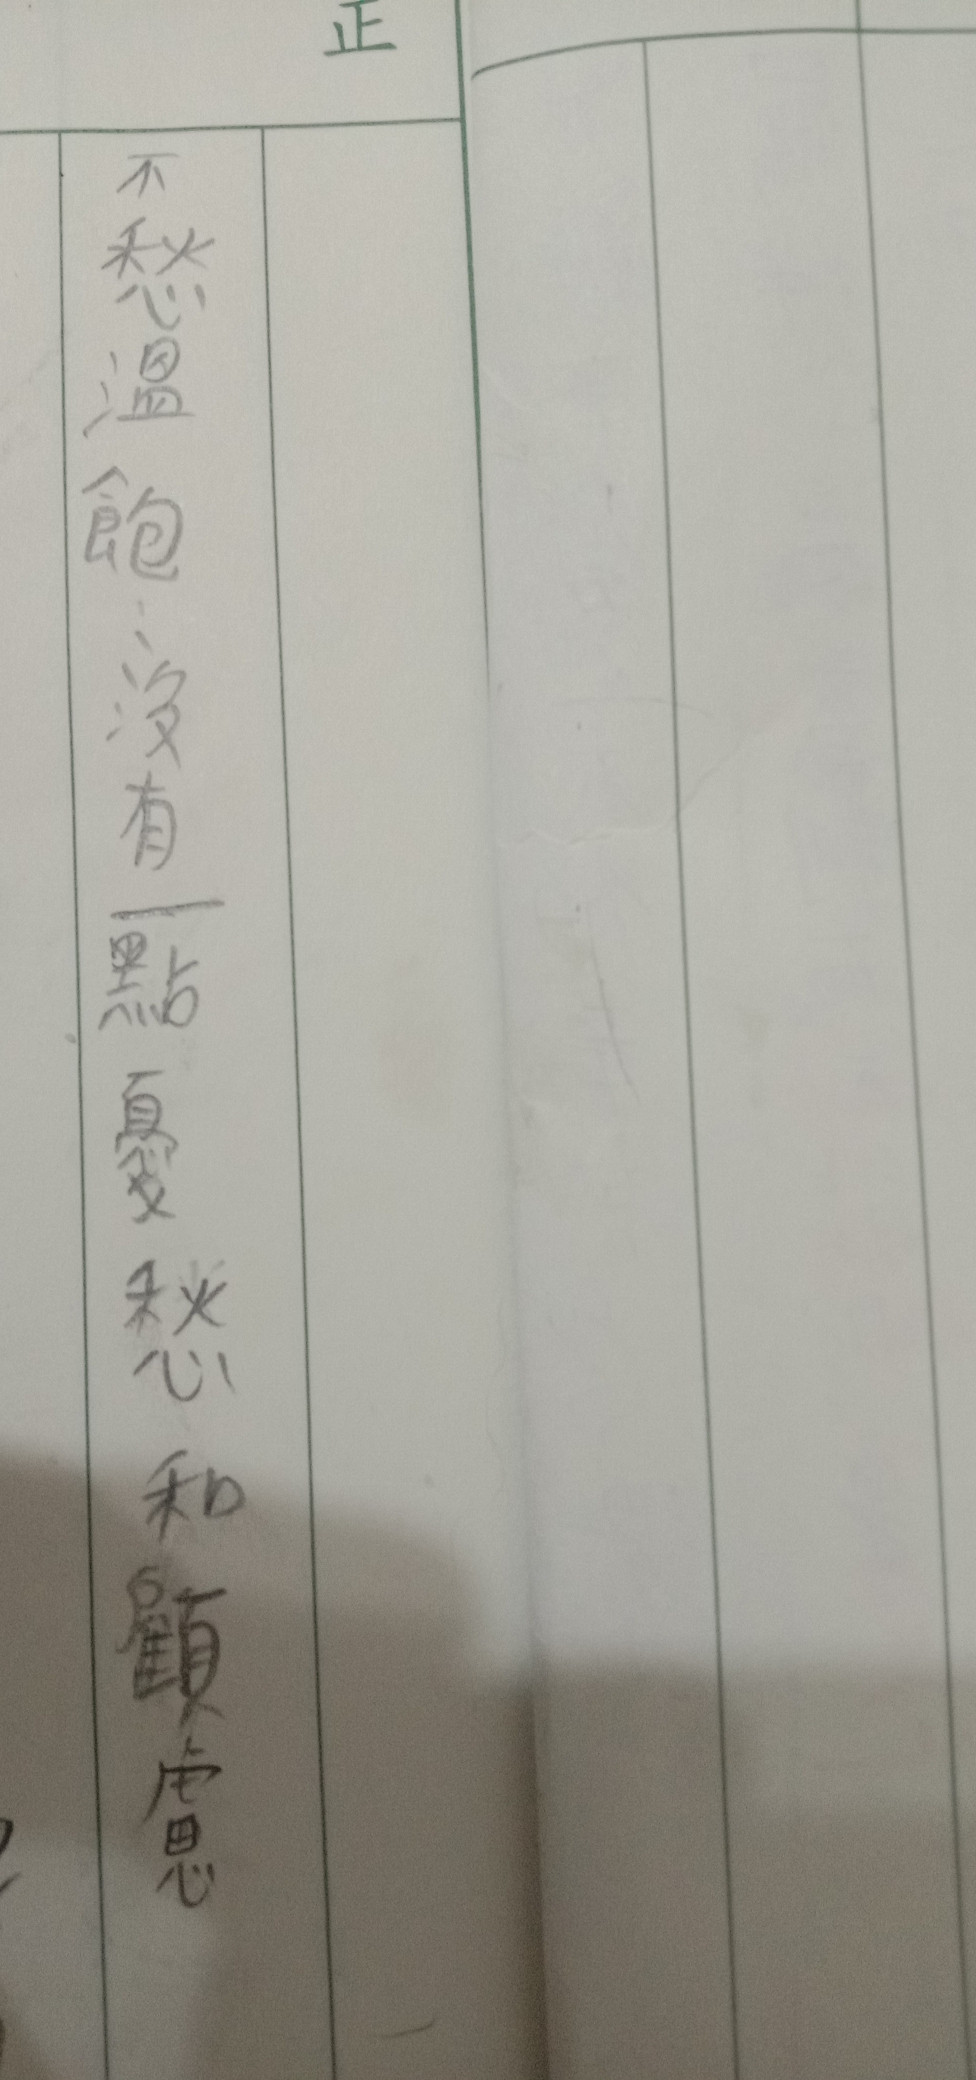 正
不愁溫飽：沒有一點憂愁和顧慮